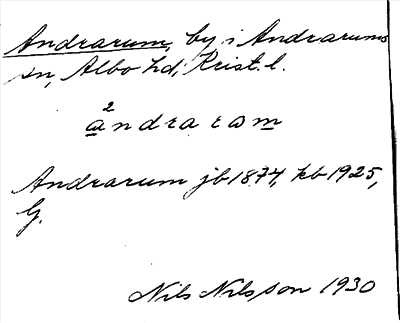 Andrarum, by i Andrarums
sn, Albo hd, Krist. l.
2
andraram
Andrarum jb 1874, kb 1925,
G.
Nils Nilsson 1930